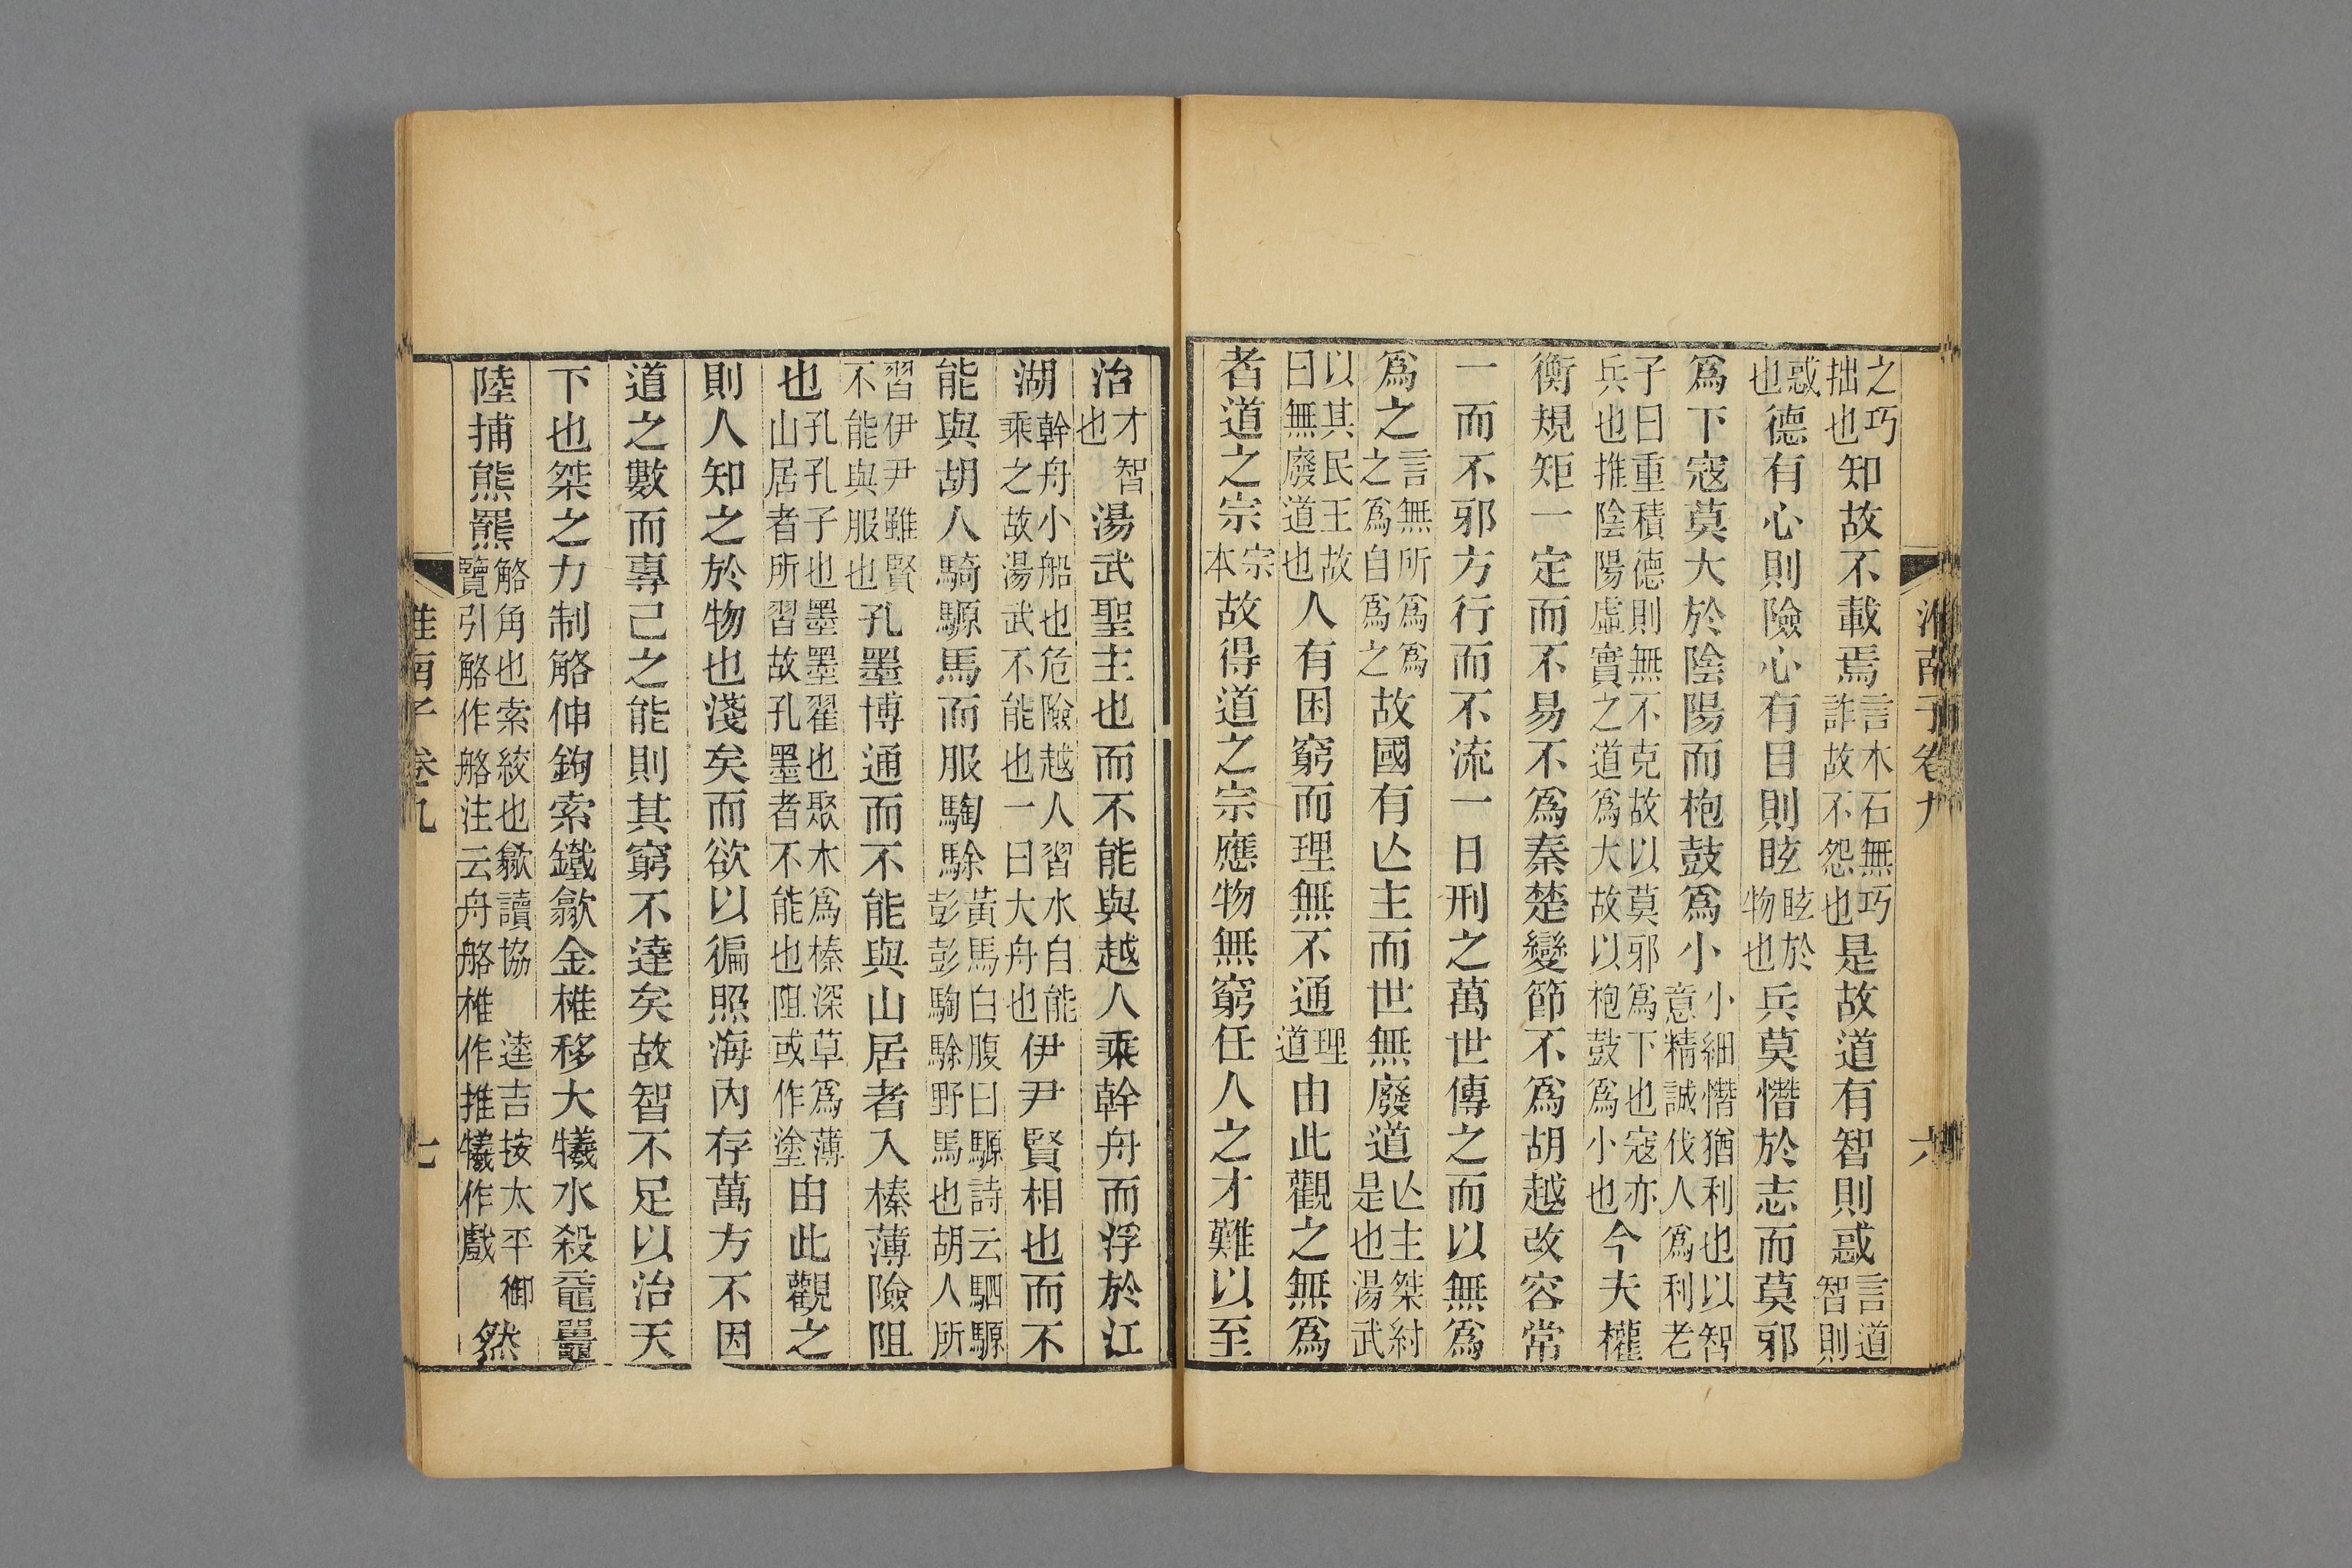 淮南子卷九 六
之巧拙也知故不載焉言木石無巧詐故不怨也是故道有智則惑言道智則
惑也德有心則險心有目則眩眩於物也兵莫憯於志而莫邪
爲下寇莫大於陰陽而枹鼓爲小小細憯猶利也以智意精誠伐人爲利老
子曰重積德則無不克故以莫邪爲下也寇亦兵也推陰陽虛實之道爲大故以枹鼓爲小也今夫權
衡規矩一定而不易不爲秦楚變節不爲胡越改容常
一而不邪方行而不流一日刑之萬世傳之而以無爲
爲之言無所爲爲之爲自爲之故國有亾主而世無廢道亾主桀紂是也湯武
以其民王故曰無廢道也人有困窮而理無不通理道由此觀之無爲
者道之宗宗本故得道之宗應物無窮任人之才難以至
治才智也湯武聖主也而不能與越人乘幹舟而浮於江
湖幹舟小船也危險越人習水自能乘之故湯武不能也一曰大舟也伊尹賢相也而不
能與胡人騎騵馬而服騊駼黃馬白腹曰騵詩云駟騵彭彭騊駼野馬也胡人所
習伊尹雖賢不能與服也孔墨博通而不能與山居者入榛薄險阻
也孔孔子也墨墨翟也聚木爲榛深草爲薄山居者所習故孔墨者不能也阻或作塗由此觀之
則人知之於物也淺矣而欲以徧照海內存萬方不因
道之數而專己之能則其窮不達矣故智不足以治天
下也桀之力制觡伸鉤索鐵歙金椎移大犧水殺黿鼉
陸捕熊羆觡角也索絞也歙讀協逵吉按太平御覽引觡作舩注云舟舩椎作推犧作戲然
淮南子卷九 七